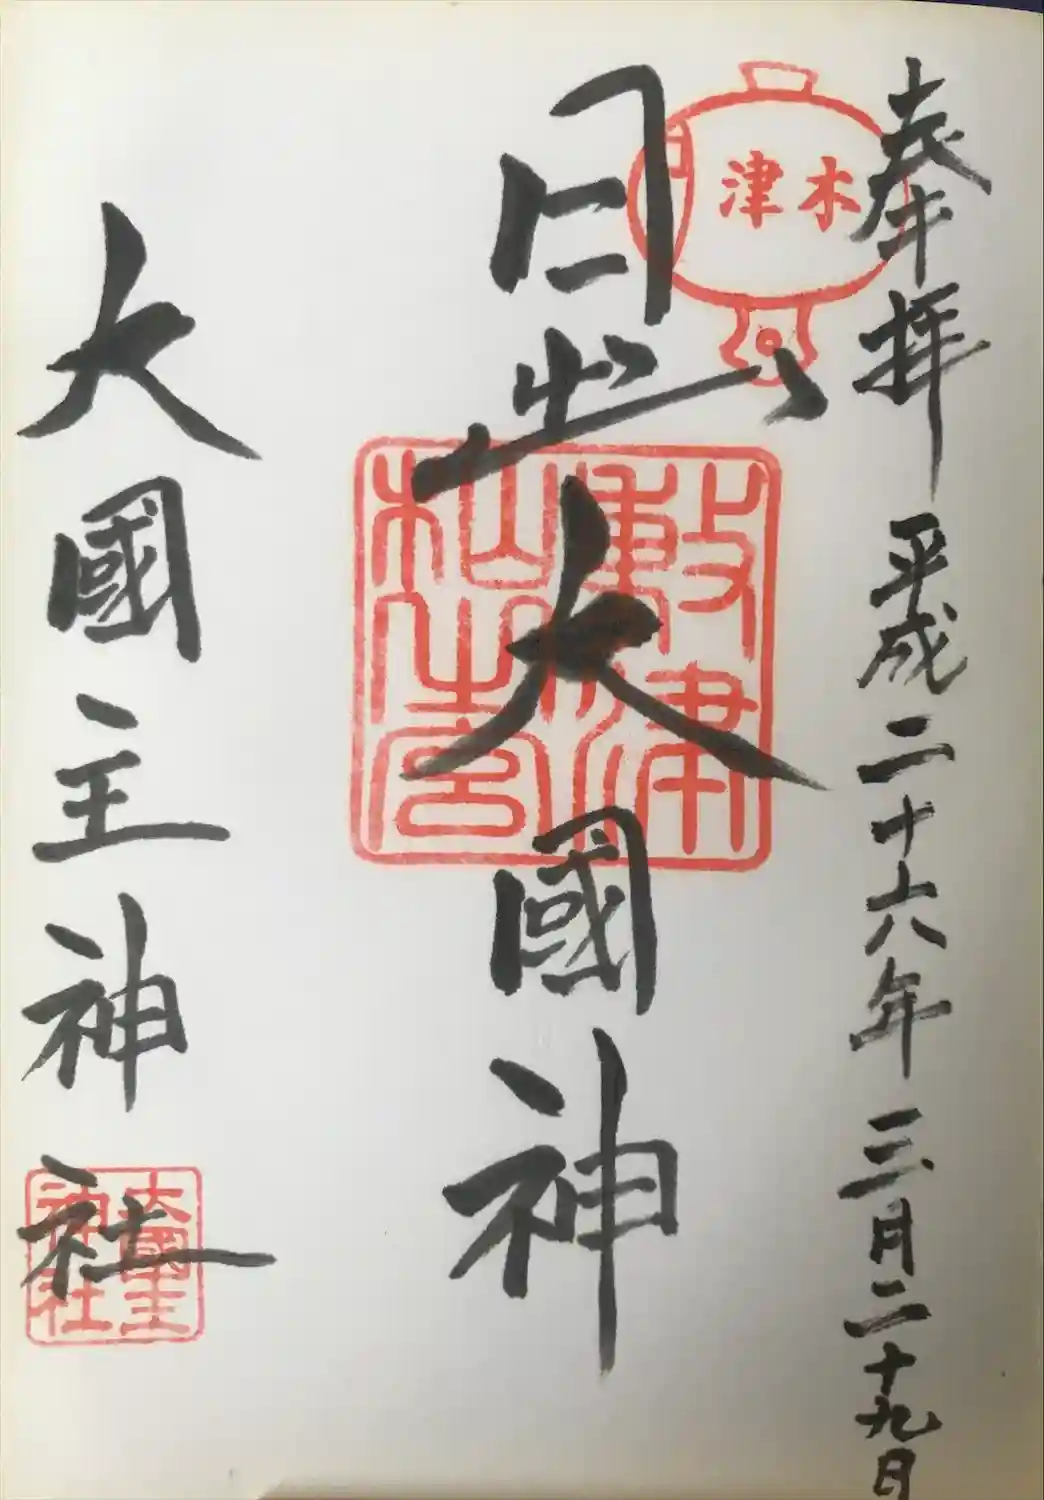 奉拝 平成二十六年 三月二十九日
木津
日出大國神
敷津松之宮
大國主神社
大國主神社